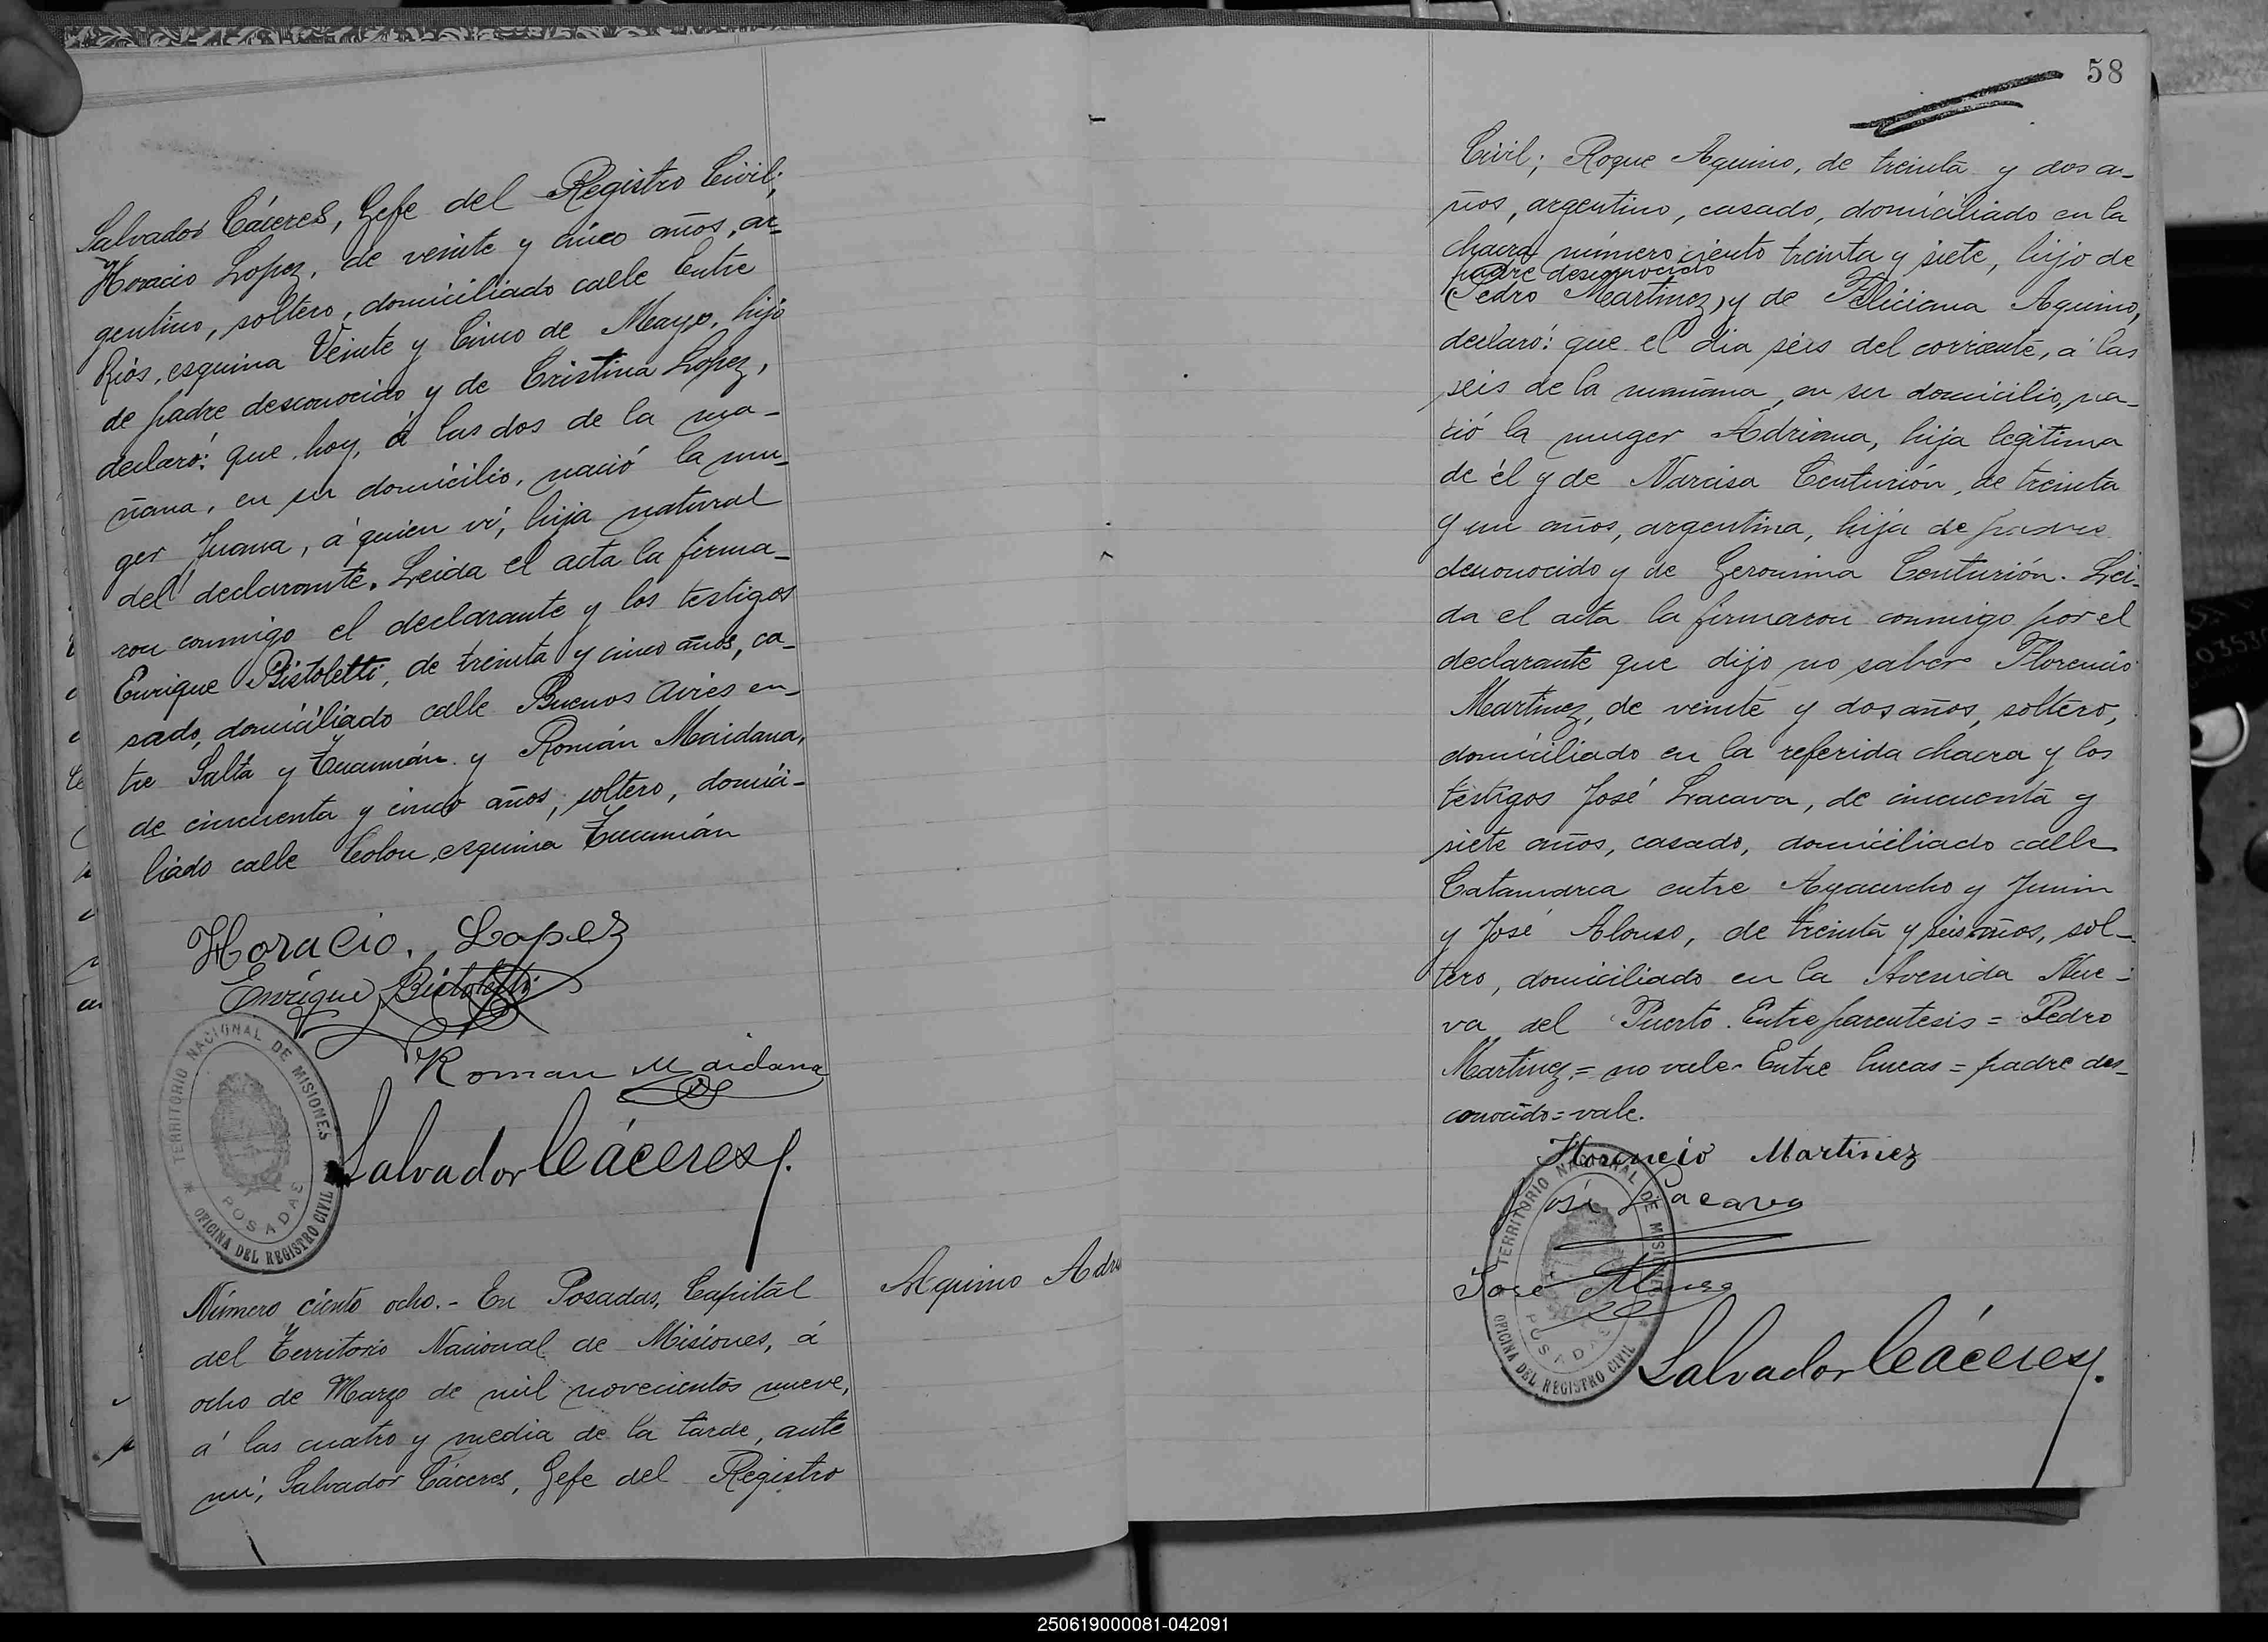 Salvador Cáceres, Gefe del Registro Civil;
Horacio Lopez, de veinte y cinco años, ar-
gentino, soltero, domiciliado calle Entre
Ríos, esquina Veinte y Cinco de Mayo, hijo
de padre desconocido y de Cristina Lopez,
declaró: que hoy, á las dos de la ma-
ñana, en su domicilio, nació la mu-
ger Juana, á quien ví, hija natural
del declarante. Leida el acta la firma-
ron conmigo el declarante y los testigos
Enrique Bistoletti, de treinta y cinco años, ca-
sado, domiciliado calle Buenos Aires en-
tre Salta y Tucumán y Román Maidana,
de cincuenta y cinco años, soltero, domici-
liado calle Colon, esquina Tucumán
Horacio. Lopez
Enrique Bistoletti
Roman Maidana
Salvador Cáceres
TERRITORIO NACIONAL DE MISIONES
POSADAS
OFICINA DEL REGISTRO CIVIL
Número ciento ocho.- En Posadas, Capital
del Territorio Nacional de Misiones, á
ocho de Marzo de mil novecientos nueve,
á las cuatro y media de la tarde, ante
mi, Salvador Cáceres, Gefe del Registro
Aquino Adri
58
Civil; Roque Aquino, de treinta y dos a-
ños, argentino, casado, domiciliado en la
chacra número ciento treinta y siete, hijo de
padre desconocido
(Pedro Martinez) y de Feliciana Aquino,
declaró: que el dia seis del corriente, á las
seis de la mañana, en su domicilio, na-
ció la muger Adriana, hija legitima
de él y de Narcisa Centurión, de treinta
y un años, argentina, hija de padre
desconocido y de Geronima Centurión. Lei-
da el acta la firmaron conmigo por el
declarante que dijo no saber Florencio
Martinez, de veinte y dos años, soltero,
domiciliado en la referida chacra y los
testigos José Lacava, de cincuenta y
siete años, casado, domiciliado calle
Catamarca entre Ayacucho y Junin
y José Alonso, de treinta y seis años, sol-
tero, domiciliado en la Avenida Nue-
va del Puerto. Entre parentesis = Pedro
Martinez = no vale. Entre lineas = padre des-
conocido = vale.
Florencio Martinez
José Lacava
José Alonso
Salvador Cáceres
TERRITORIO NACIONAL DE MISIONES
POSADAS
OFICINA DEL REGISTRO CIVIL
250619000081-042091